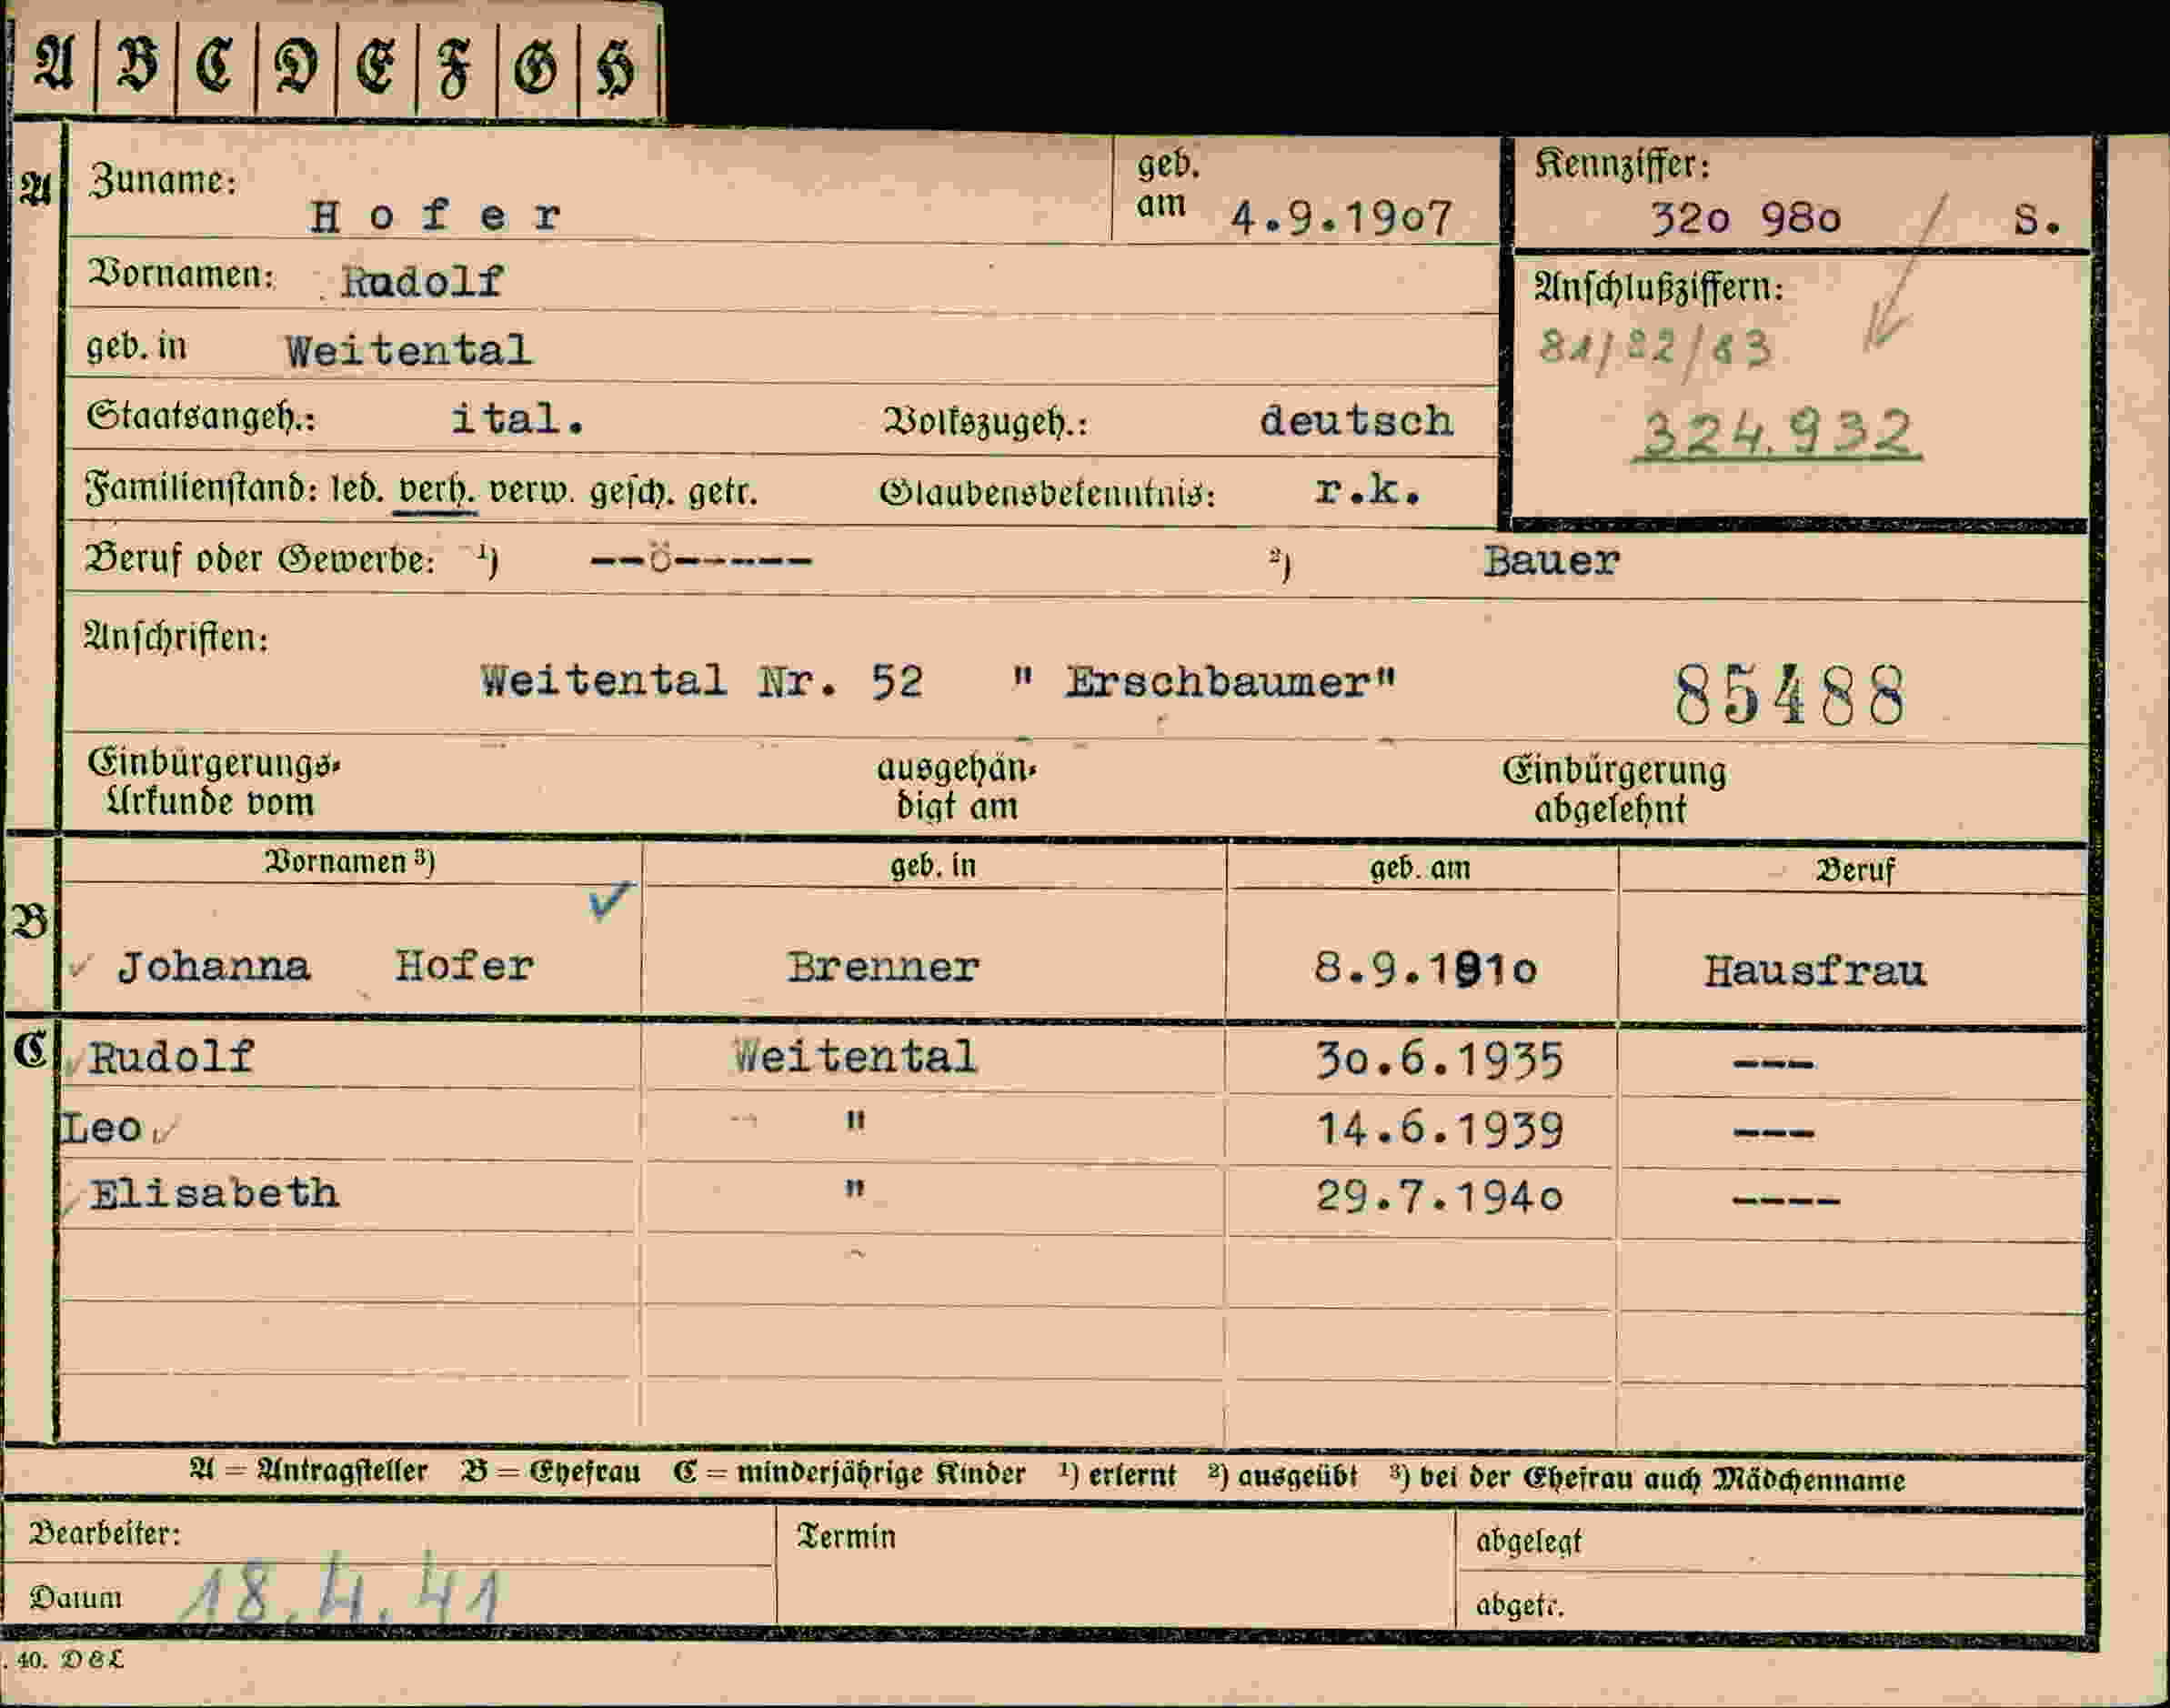 A B C D E F G H
A Zuname: Hofer geb. am 4.9.1907 Kennziffer: 320 980 S.
Vornamen: Rudolf Anschlußziffern:
81/82/83
geb. in Weitental
Staatsangeh.: ital. Volkszugeh.: deutsch 324.932
Familienstand: led. verh. verw. gesch. getr. Glaubensbekenntnis: r.k.
Beruf oder Gewerbe: ¹) --ö------ ²) Bauer
Anschriften:
Weitental Nr. 52 " Erschbaumer" 85488
Einbürgerungs- ausgehän- Einbürgerung
Urkunde vom digt am abgelehnt
Vornamen ³) geb. in geb. am Beruf
B ✓
✓ Johanna Hofer Brenner 8.9.1910 Hausfrau
C ✓ Rudolf Weitental 30.6.1935 ---
Leo ✓ " 14.6.1939 ---
✓ Elisabeth " 29.7.1940 ----
A = Antragsteller B = Ehefrau C = minderjährige Kinder ¹) erlernt ²) ausgeübt ³) bei der Ehefrau auch Mädchenname
Bearbeiter: Termin abgelegt
Datum 18.4.41 abgetr.
. 40. D & L